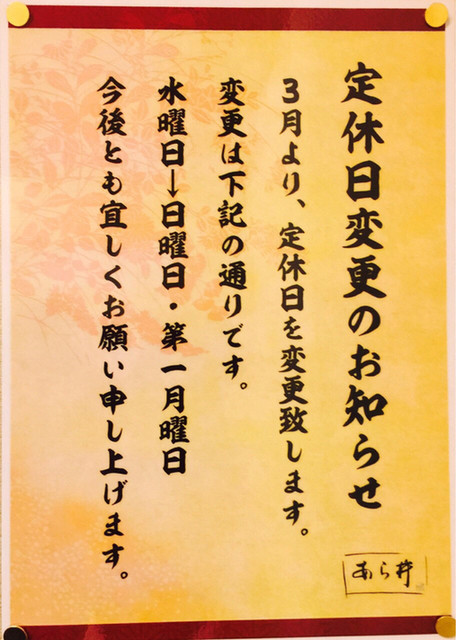 定休日変更のお知らせ
3月より、定休日を変更致します。
変更は下記の通りです。
水曜日→日曜日・第一月曜日
今後とも宜しくお願い申し上げます。
あら井